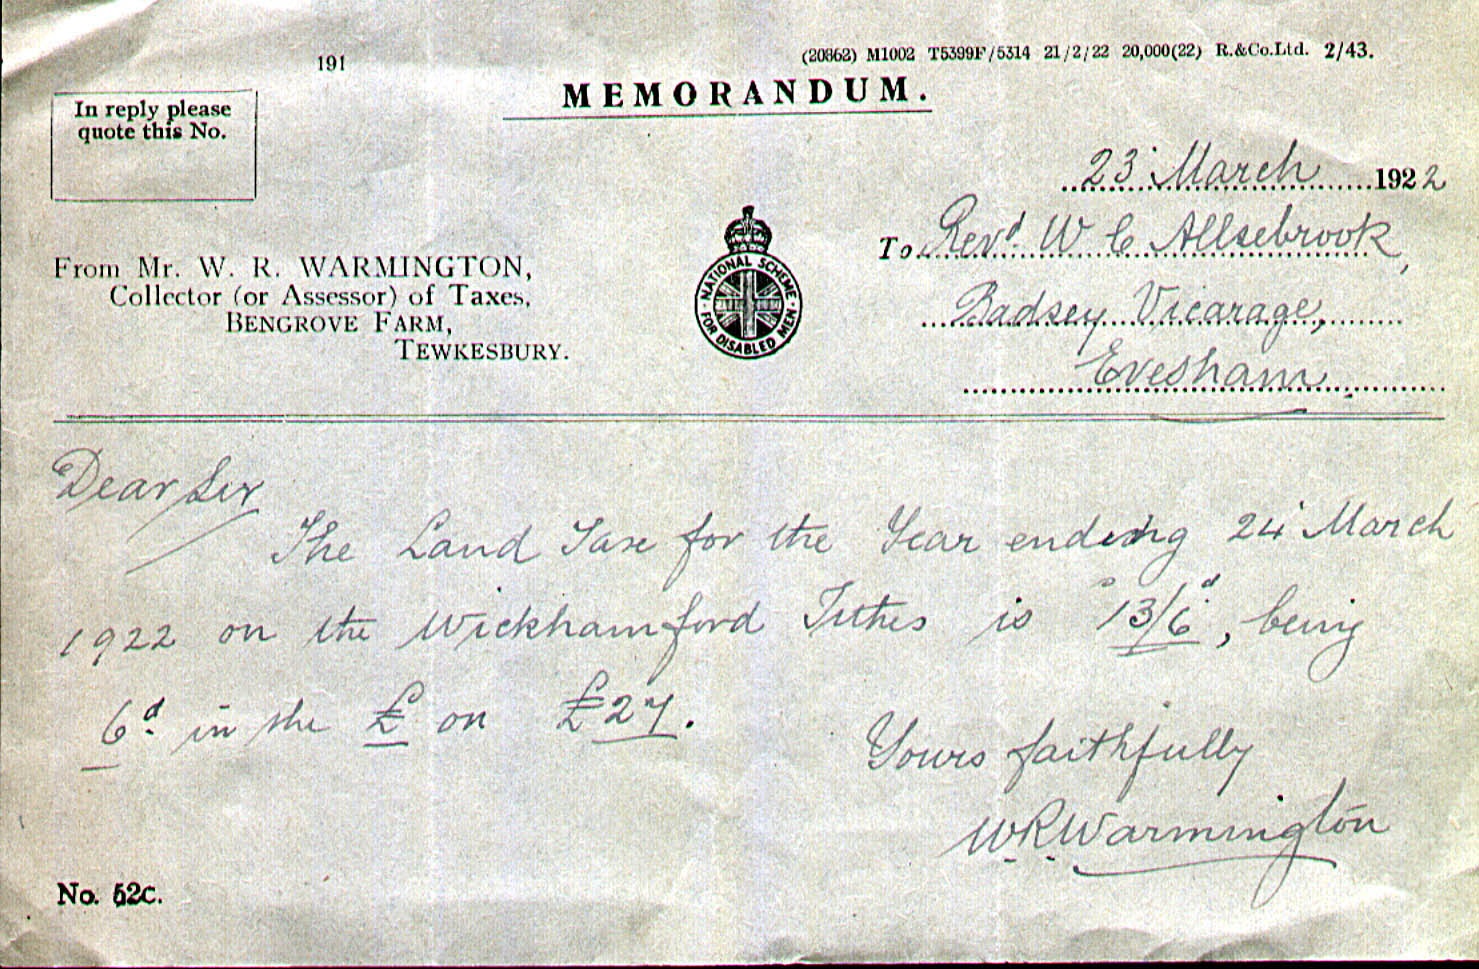 191
(20862) M1002 T5399F/5314 21/2/22 20,000(22) R.&Co.Ltd. 2/43.
MEMORANDUM.
In reply please
quote this No.
23 March 1922
To Revd. W C Allsebrook,
Badsey Vicarage,
Evesham,
From Mr. W. R. WARMINGTON,
Collector (or Assessor) of Taxes,
BENGROVE FARM,
TEWKESBURY.
NATIONAL SCHEME
FOR DISABLED MEN
Dear Sir
The Land Tax for the Year ending 24 March
1922 on the Wickhamford Tithes is 13/6d, being
6d. in the £ on £27.
Yours faithfully
W.R.Warmington
No. 52c.